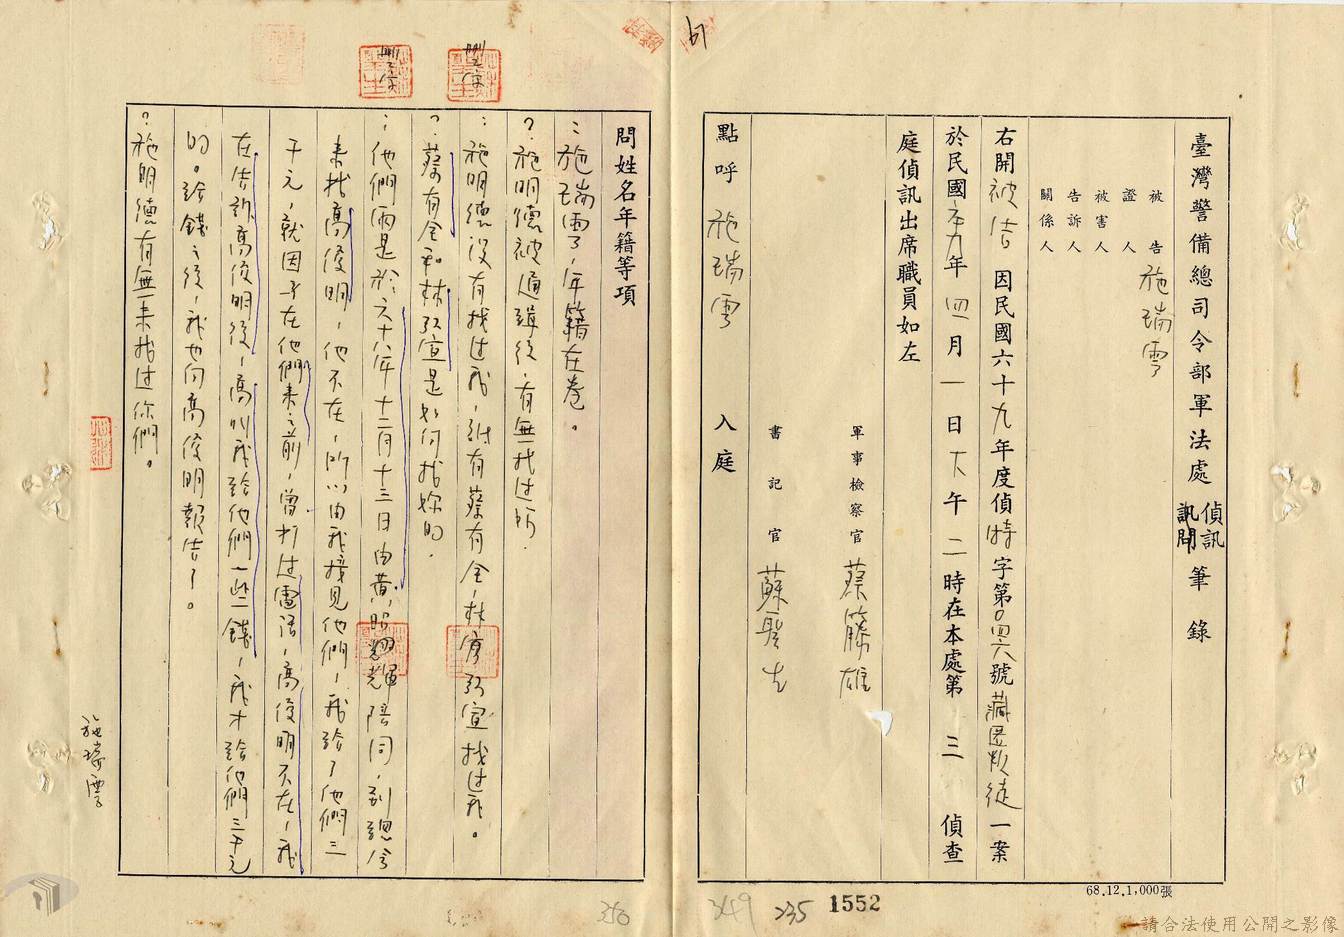 臺灣警備總司令部軍法處偵訊訊問筆錄
被告 施瑞雲
證人
被害人
告訴人
關係人
右開被告因民國六十九年度偵特字第0四六號藏匿叛徒一案
於民國六九年四月一日下午二時在本處第三偵查
庭偵訊出席職員如左
軍事檢察官 蔡籐雄
書記官 蘇聖士
點呼 施瑞雲 入庭
問姓名年籍等項
:施瑞雲,年籍在卷。
?施明德被通緝後,有無找过妳.
:施明德沒有找过我,祇有蔡有全,林弘宣找过我。
?蔡有全和林弘宣是如何找妳的.
:他們兩是於六十八年十二月十三日由黃昭輝陪同,到總会
来找高俊明,他不在,所以由我接見他們,我給了他們三
千元,就因為在他們来之前,曾打过電話,高俊明不在,我
在告訴高俊明後,高叫我給他們一些錢,我才給他們三千元
的。給錢之後,我也向高俊明報告了。
?施明德有無来找过你們。
施瑞雲
61
350
349
235
1552
68.12.1,000張
請合法使用公開之影像